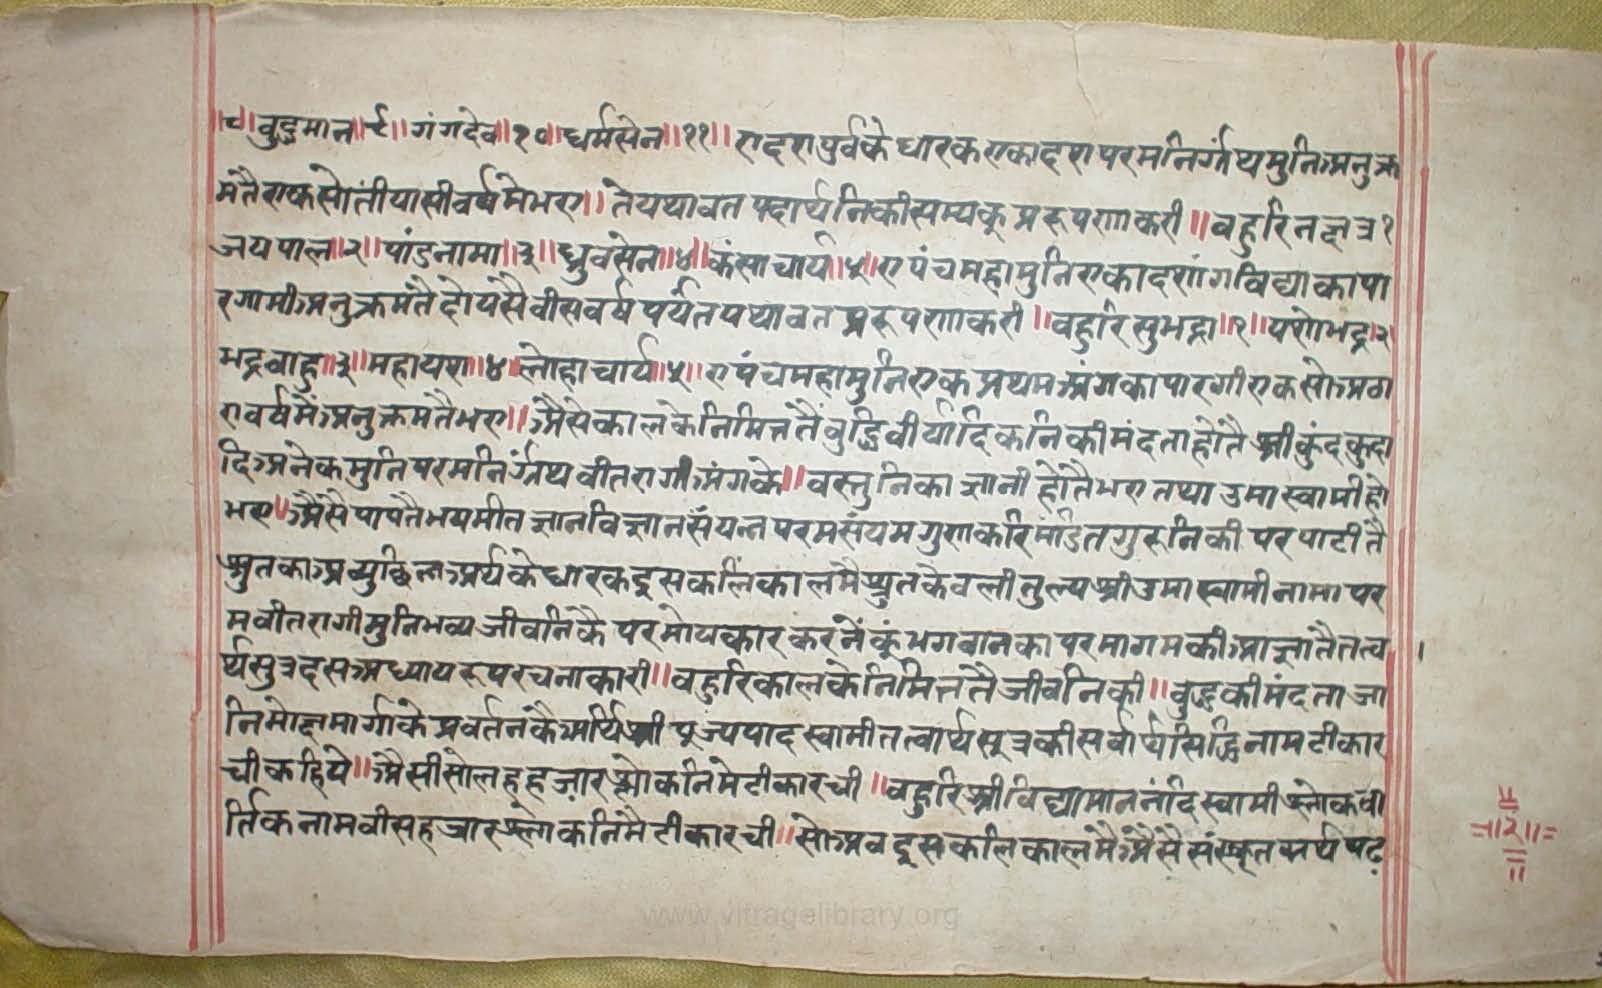 ॥८॥वुद्धुमान॥९॥गंगदेव॥१०॥धर्मसेन॥११॥एादशपुर्वके धारक एकादश परमनिर्ग्रंथ मुनिऽप्रनुक्र
मतै एकसो तीयासी वर्षमे भए॥ ते यथावत पदार्थनिकी सम्यक् प्ररूपणा करी॥ वहुरि नक्षत्र १
जयपाल॥२॥पांडनामा॥३॥ध्रुवसेन॥४॥कंसाचार्य॥५॥ए पंच महामुनि एकादशांग विद्याका पा
रगामीऽअनुक्रमतै दोयसै वीस वर्ष पर्यंत पथावत प्ररूपणा करी॥ वहुरि सुभद्रा॥१॥यशोभद्र॥२
भद्रवाहु॥३॥महायश॥४॥लोहाचार्य॥५॥ए पंच महामुनि एक प्रथम अंगका पारगी एकसोऽअठा
रा वर्षमैंऽअनुक्रमतै भए॥ऽअैसै कालके निमित्ततैं वुद्धि वीर्यादिकनिकी मंदता होतै श्री कुंदकुदा
दिऽअनेक मुनि परम निर्ग्रंथ वीतरागीऽअंगके॥ वस्तुनिका ज्ञानी होतै भए तथा उमास्वामी हो
भए॥ऽअैसै पापतै भयभीत ज्ञान विज्ञान संयन्न परम संयम गुण करि मंडित गुरूनिकी परपाटीतै
श्रुतकाऽअव्युछिन्नऽअर्थके धारक इस कलिकालमै श्रुतकेवली तुल्य श्री उमास्वामी नामा पर
म वीतरागी मुनि भव्य जीवनिकै परमोपकार करनेंकूं भगवानका परमागमकीऽआज्ञातै तत्व
र्थसुत्र दसऽअध्याय रूप रचनाकारी॥ वहुरि कालके निमित्ततै जीवनिकी॥ वुद्धकी मंदता जा
नि मोक्षमार्गके प्रवर्तनकैऽअर्थि श्री पूज्यपाद स्वामी तत्वार्थसूत्रकी सर्वार्थसिद्धि नाम टीका र
ची कहिये॥ऽअैसी सोलह हज़ार श्लोकनिमे टीका रची॥ वहुरि श्री विद्यामाननंदि स्वामी श्लोकवा
र्तिक नाम वीस हजार श्लोकनिमै टीका रची॥ सोऽअव इस कलिकालमैऽअैसै संस्कृत अर्थ पढ़
॥२॥
www.vitragelibrary.org